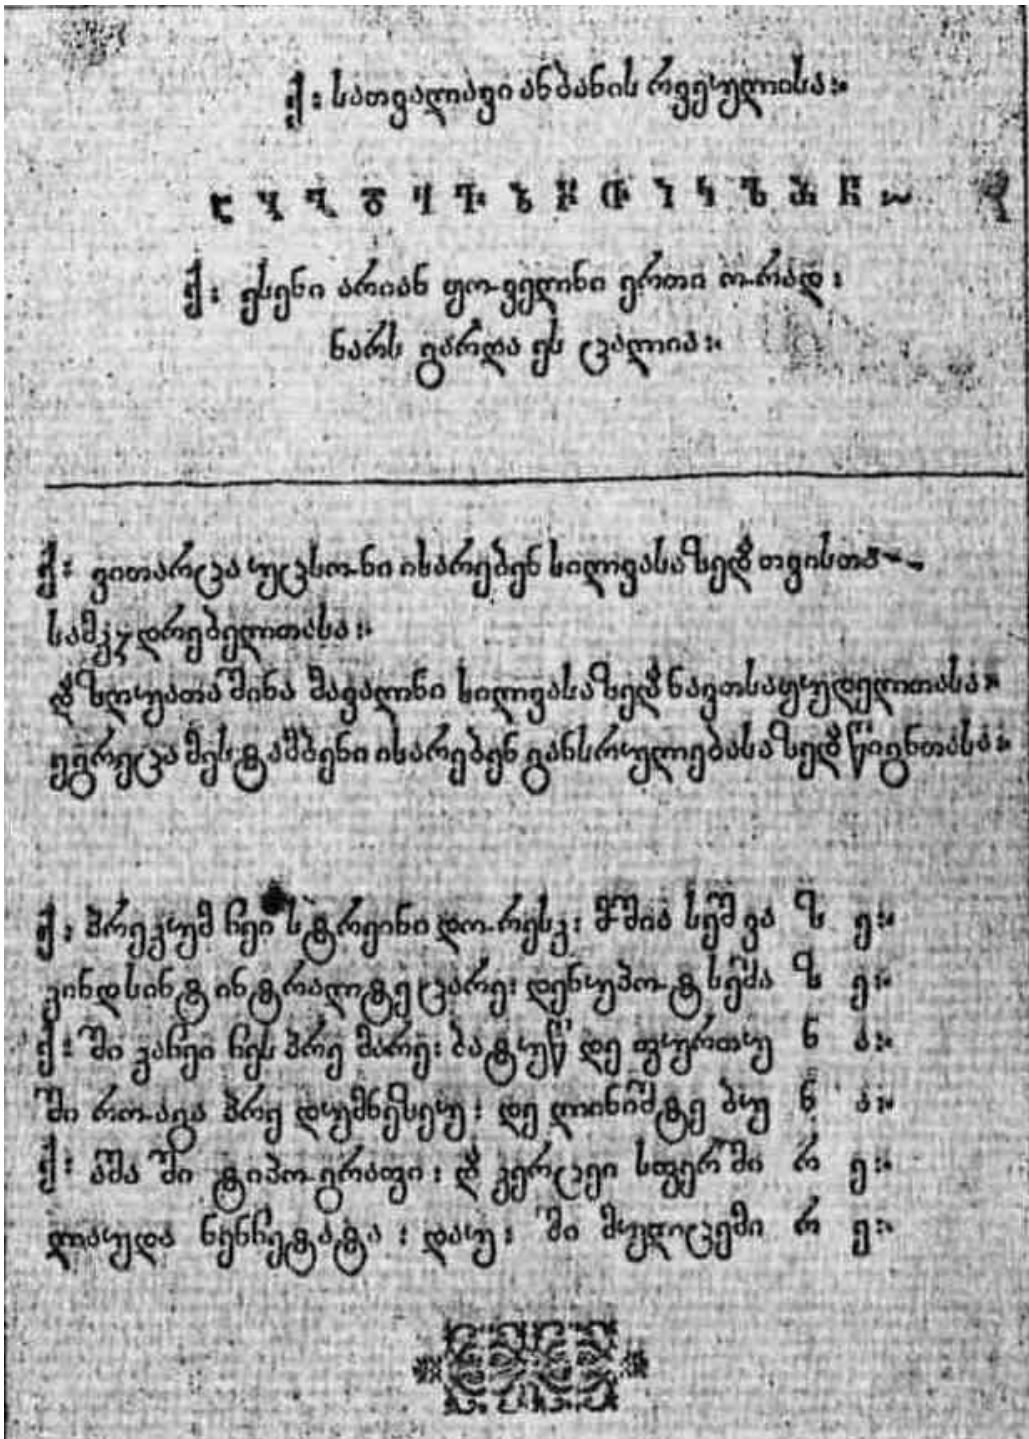 ქ: სათვალავი ანბანის რვეულისა:
ქ: ესენი არიან ყოველნი ერთი ორად:
ნარს გარდა ეს ცალია:
ქ: ვითარცა უცხონი იხარებენ სილვასა ზედ თვისთა
სამკჳდრებელთასა:
დ ზღუათა შინა მავალნი სილვასა ზედ ნავთსაყუდელთასა
ეგრეცა მესტამბენი იხარებენ განსრულებასა ზედ წიგნთასა:
ქ: პრეკუმ ჩეი სტრეინი დორესკ: მ შია სეშ ვა ზ ე:
კინდ სინტ ინტრალიტე ცარე: დენუპოტ სეშა ზ ე:
ქ: ში კაჩეი ჩეს პრე მარე: ბატუწ დე ფურთუ ნ ა:
ში როაგა პრე დუმნეზეუ: დე ლინიშტე ბუ ნ ა:
ქ: აშა ში ტიპოგრაფი: დ კერცეი სფერ ში რ ე:
ლაუდა ნენჩეტატა: დაუ: ში მულიცემი რ ე: